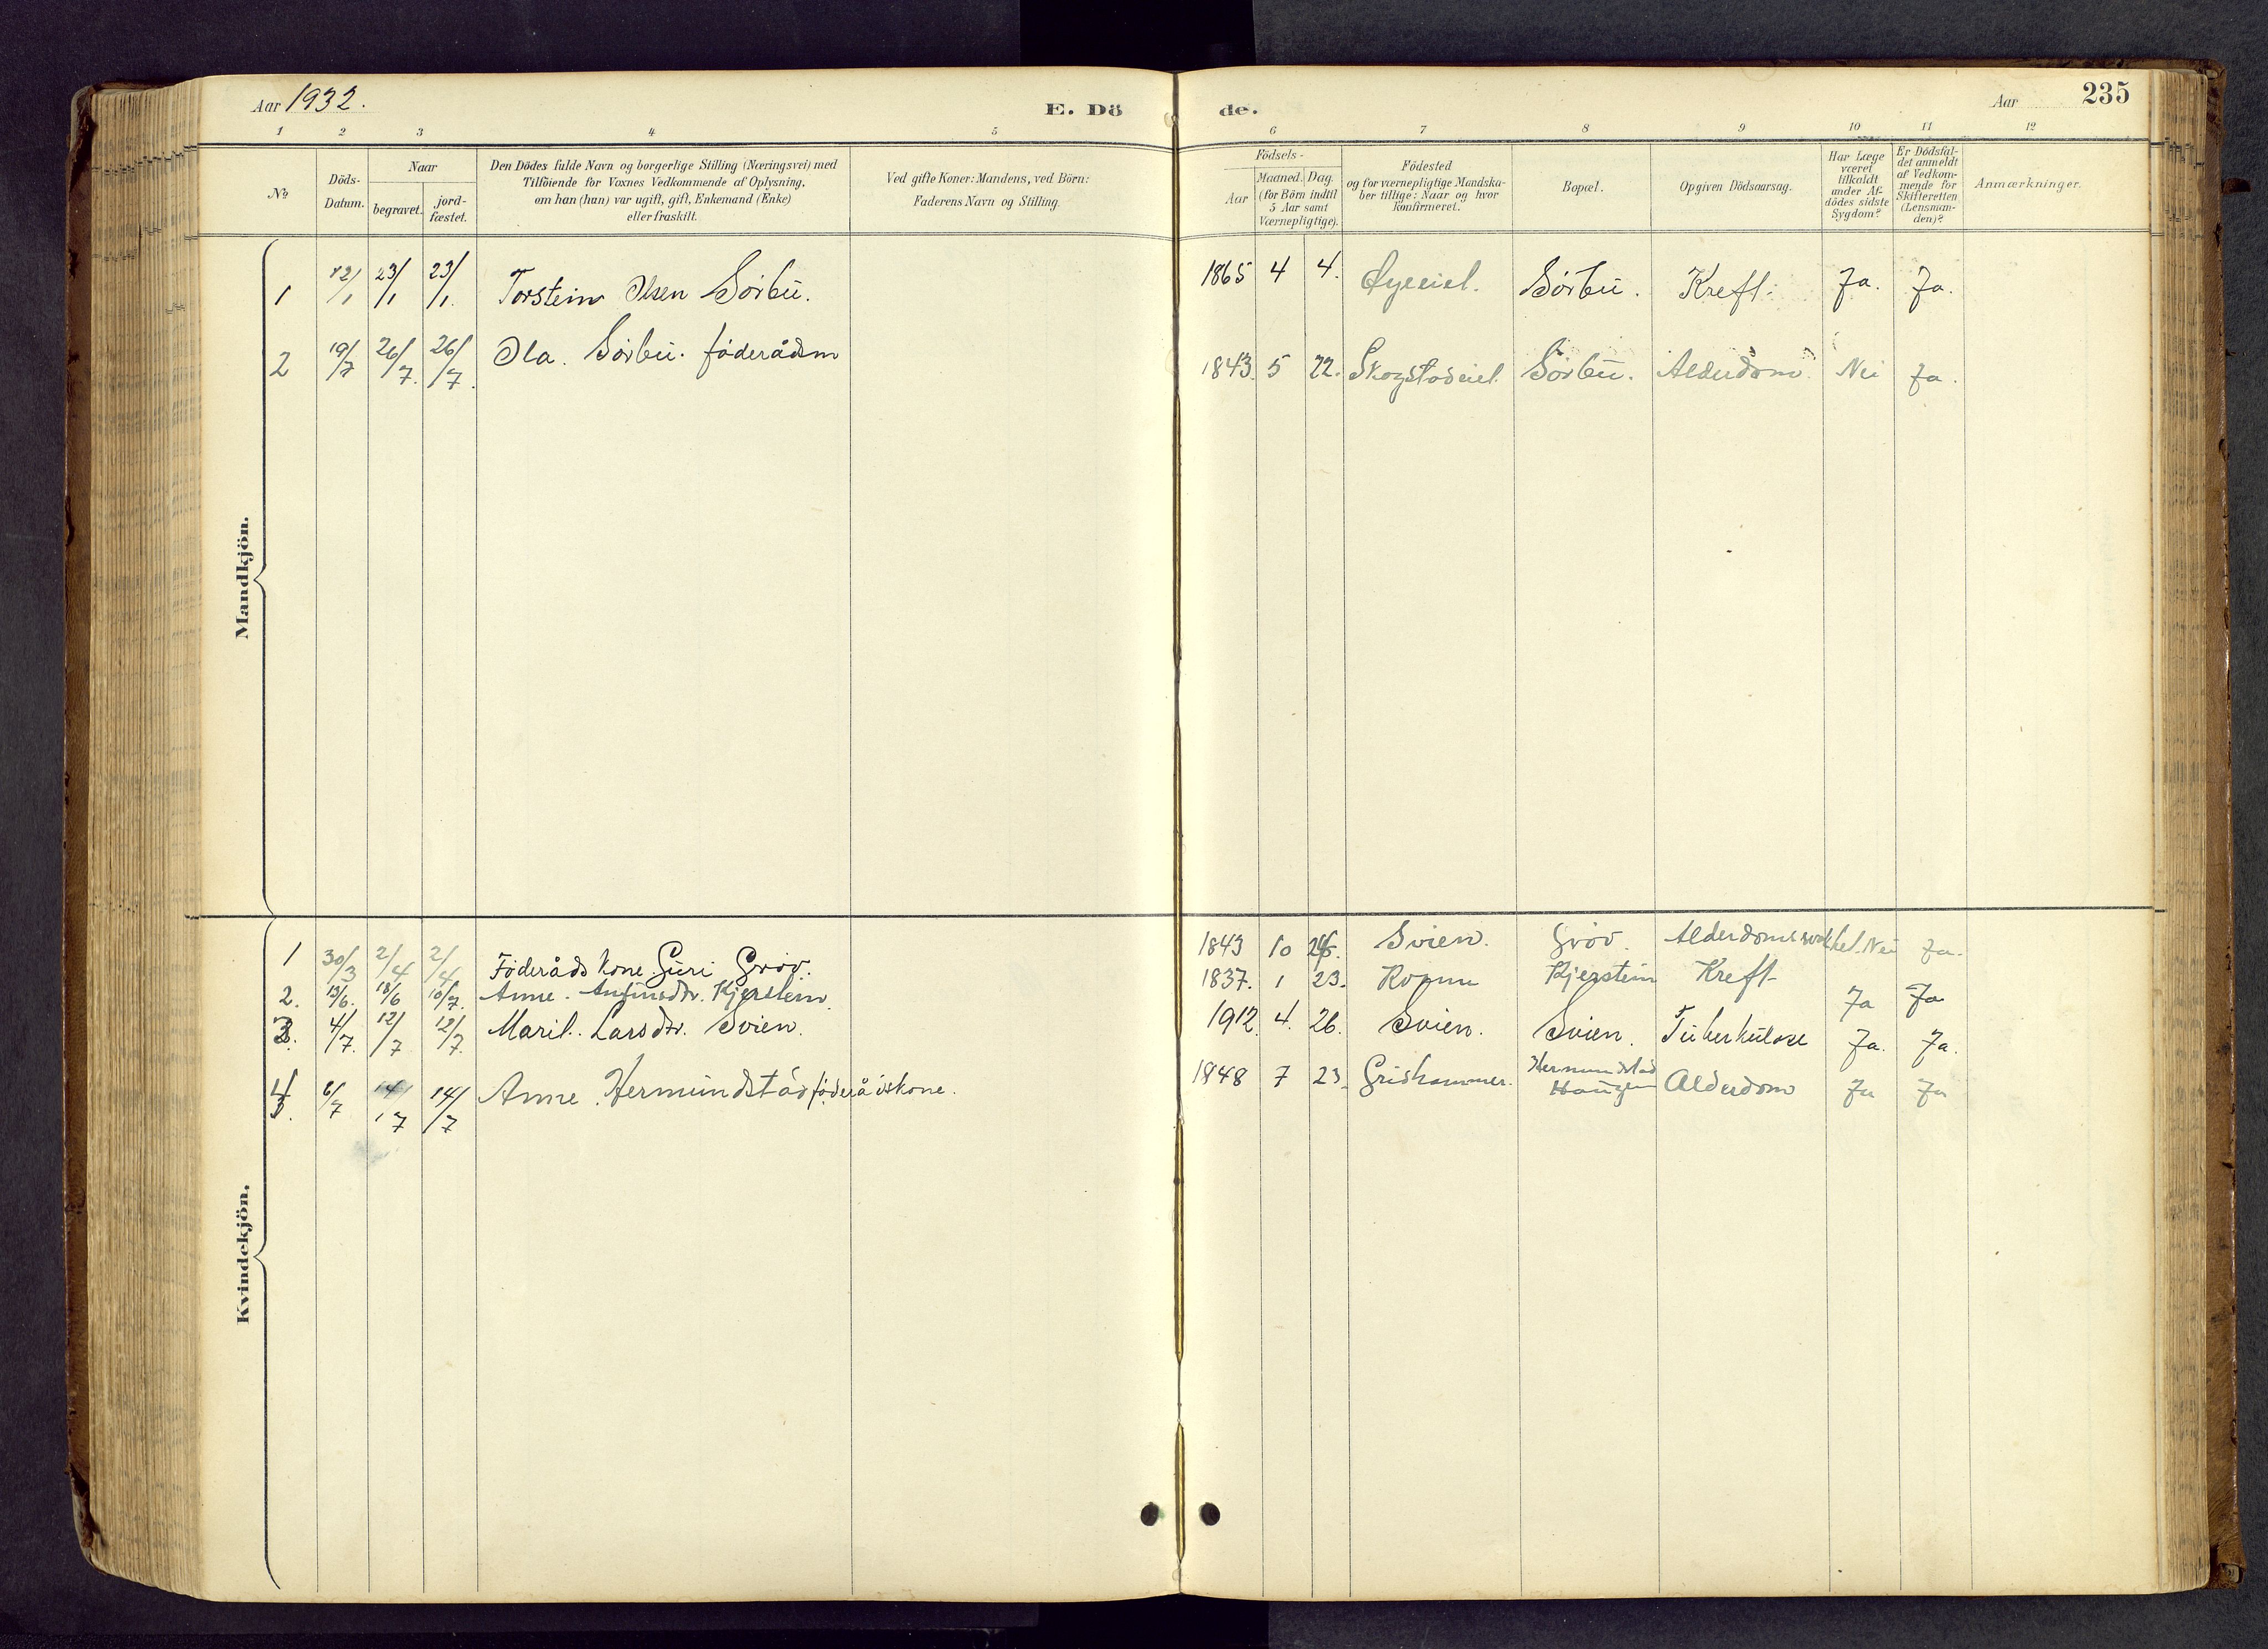 Aar 1932.
E. Dö
de.
Aar
235
1 2 3 4 5 6 7 8 9 10 11 12
No
Döds-Datum.
Naar
begravet.
jord-fæstet.
Den Dödes fulde Navn og borgerlige Stilling (Næringsvei) med
Tilföiende for Voxnes Vedkommende af Oplysning,
om han (hun) var ugift, gift, Enkemand (Enke)
eller fraskilt.
Ved gifte Koner: Mandens, ved Börn:
Faderens Navn og Stilling.
Födsels-
Aar
Maaned. Dag.
(for Börn indtil
5 Aar samt
Værnepligtige).
Födested
og for værnepligtige Mandska-
ber tillige: Naar og hvor
konfirmeret.
Bopæl.
Opgiven Dödsaarsag.
Har Læge
været
tilkaldt
under Af-
dödes sidste
Sygdom?
Er Dödsfal-
det anmeldt
af Vedkom-
mende for
Skifteretten
(Lensman-
den)?
Anmærkninger.
Mandkjön.
1 12/1 23/1 23/1. Torstein Olsen Sörbü. 1865 4 4. Sörbü. Kreft. Ja. Ja.
2 19/7 26/7. 26/7. Ola. Sörbü. föderådsm 1843. 5 22. Skogstadeiel. Sörbü. Alderdom. Nei Ja.
Kvindekjön.
1 30/3 2/4 2/4 Föderåds kone Güri Gröv. 1843 10 Svien. Gröv. Nei Ja.
2. 13/6. 18/6 10/7. Anne. Anfinsdtr. Kjerstein. 1837. 1 23. Kjerstein Kreft Ja Ja
3. 4/7. 12/7 12/7. Marit. Larsdtr. Svien. 1912 4. 26. Svien. Svien. Tüberkülose Ja. Ja.
4. 6/7 14/7 14/7 Anne Hermündstad föderådskone. 1848 7 23. Grishammer. Hermundstad
Haügen Alderdom Ja Ja